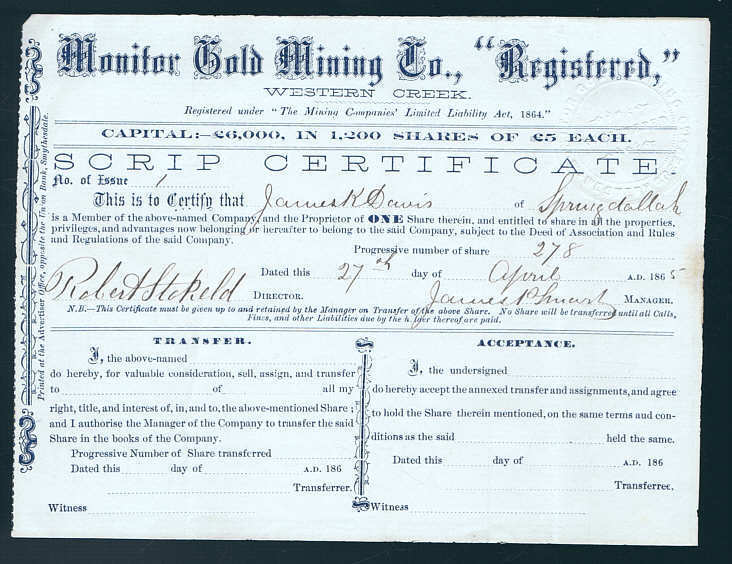 Monitor Gold Mining Co., "Registered,"
WESTERN CREEK.
Registered under "The Mining Companies' Limited Liability Act, 1864."
CAPITAL:—£6,000, IN 1,200 SHARES OF £5 EACH.
SCRIP CERTIFICATE.
No. of Issue 1
This is to Certify that James K Davis of Springdallah
is a Member of the above-named Company, and the Proprietor of ONE Share therein, and entitled to share in all the properties,
privileges, and advantages now belonging or hereafter to belong to the said Company, subject to the Deed of Association and Rules
and Regulations of the said Company.
Progressive number of share 278
Dated this 27th day of April A.D. 1865
Robert Stokeld DIRECTOR. James MANAGER.
N.B.—This Certificate must be given up to and retained by the Manager on Transfer of the above Share. No Share will be transferred until all Calls,
Fines, and other Liabilities due by the holder thereof are paid.
TRANSFER.
I, the above-named
do hereby, for valuable consideration, sell, assign, and transfer
to of all my
right, title, and interest of, in, and to, the above-mentioned Share;
and I authorise the Manager of the Company to transfer the said
Share in the books of the Company.
Progressive Number of Share transferred
Dated this day of A.D. 186
Transferrer.
Witness
ACCEPTANCE.
I, the undersigned
do hereby accept the annexed transfer and assignments, and agree
to hold the Share therein mentioned, on the same terms and con-
ditions as the said held the same.
Dated this day of A.D. 186
Transferree.
Witness
Printed at the Advertiser Office, opposite the Union Bank, Smythesdale.